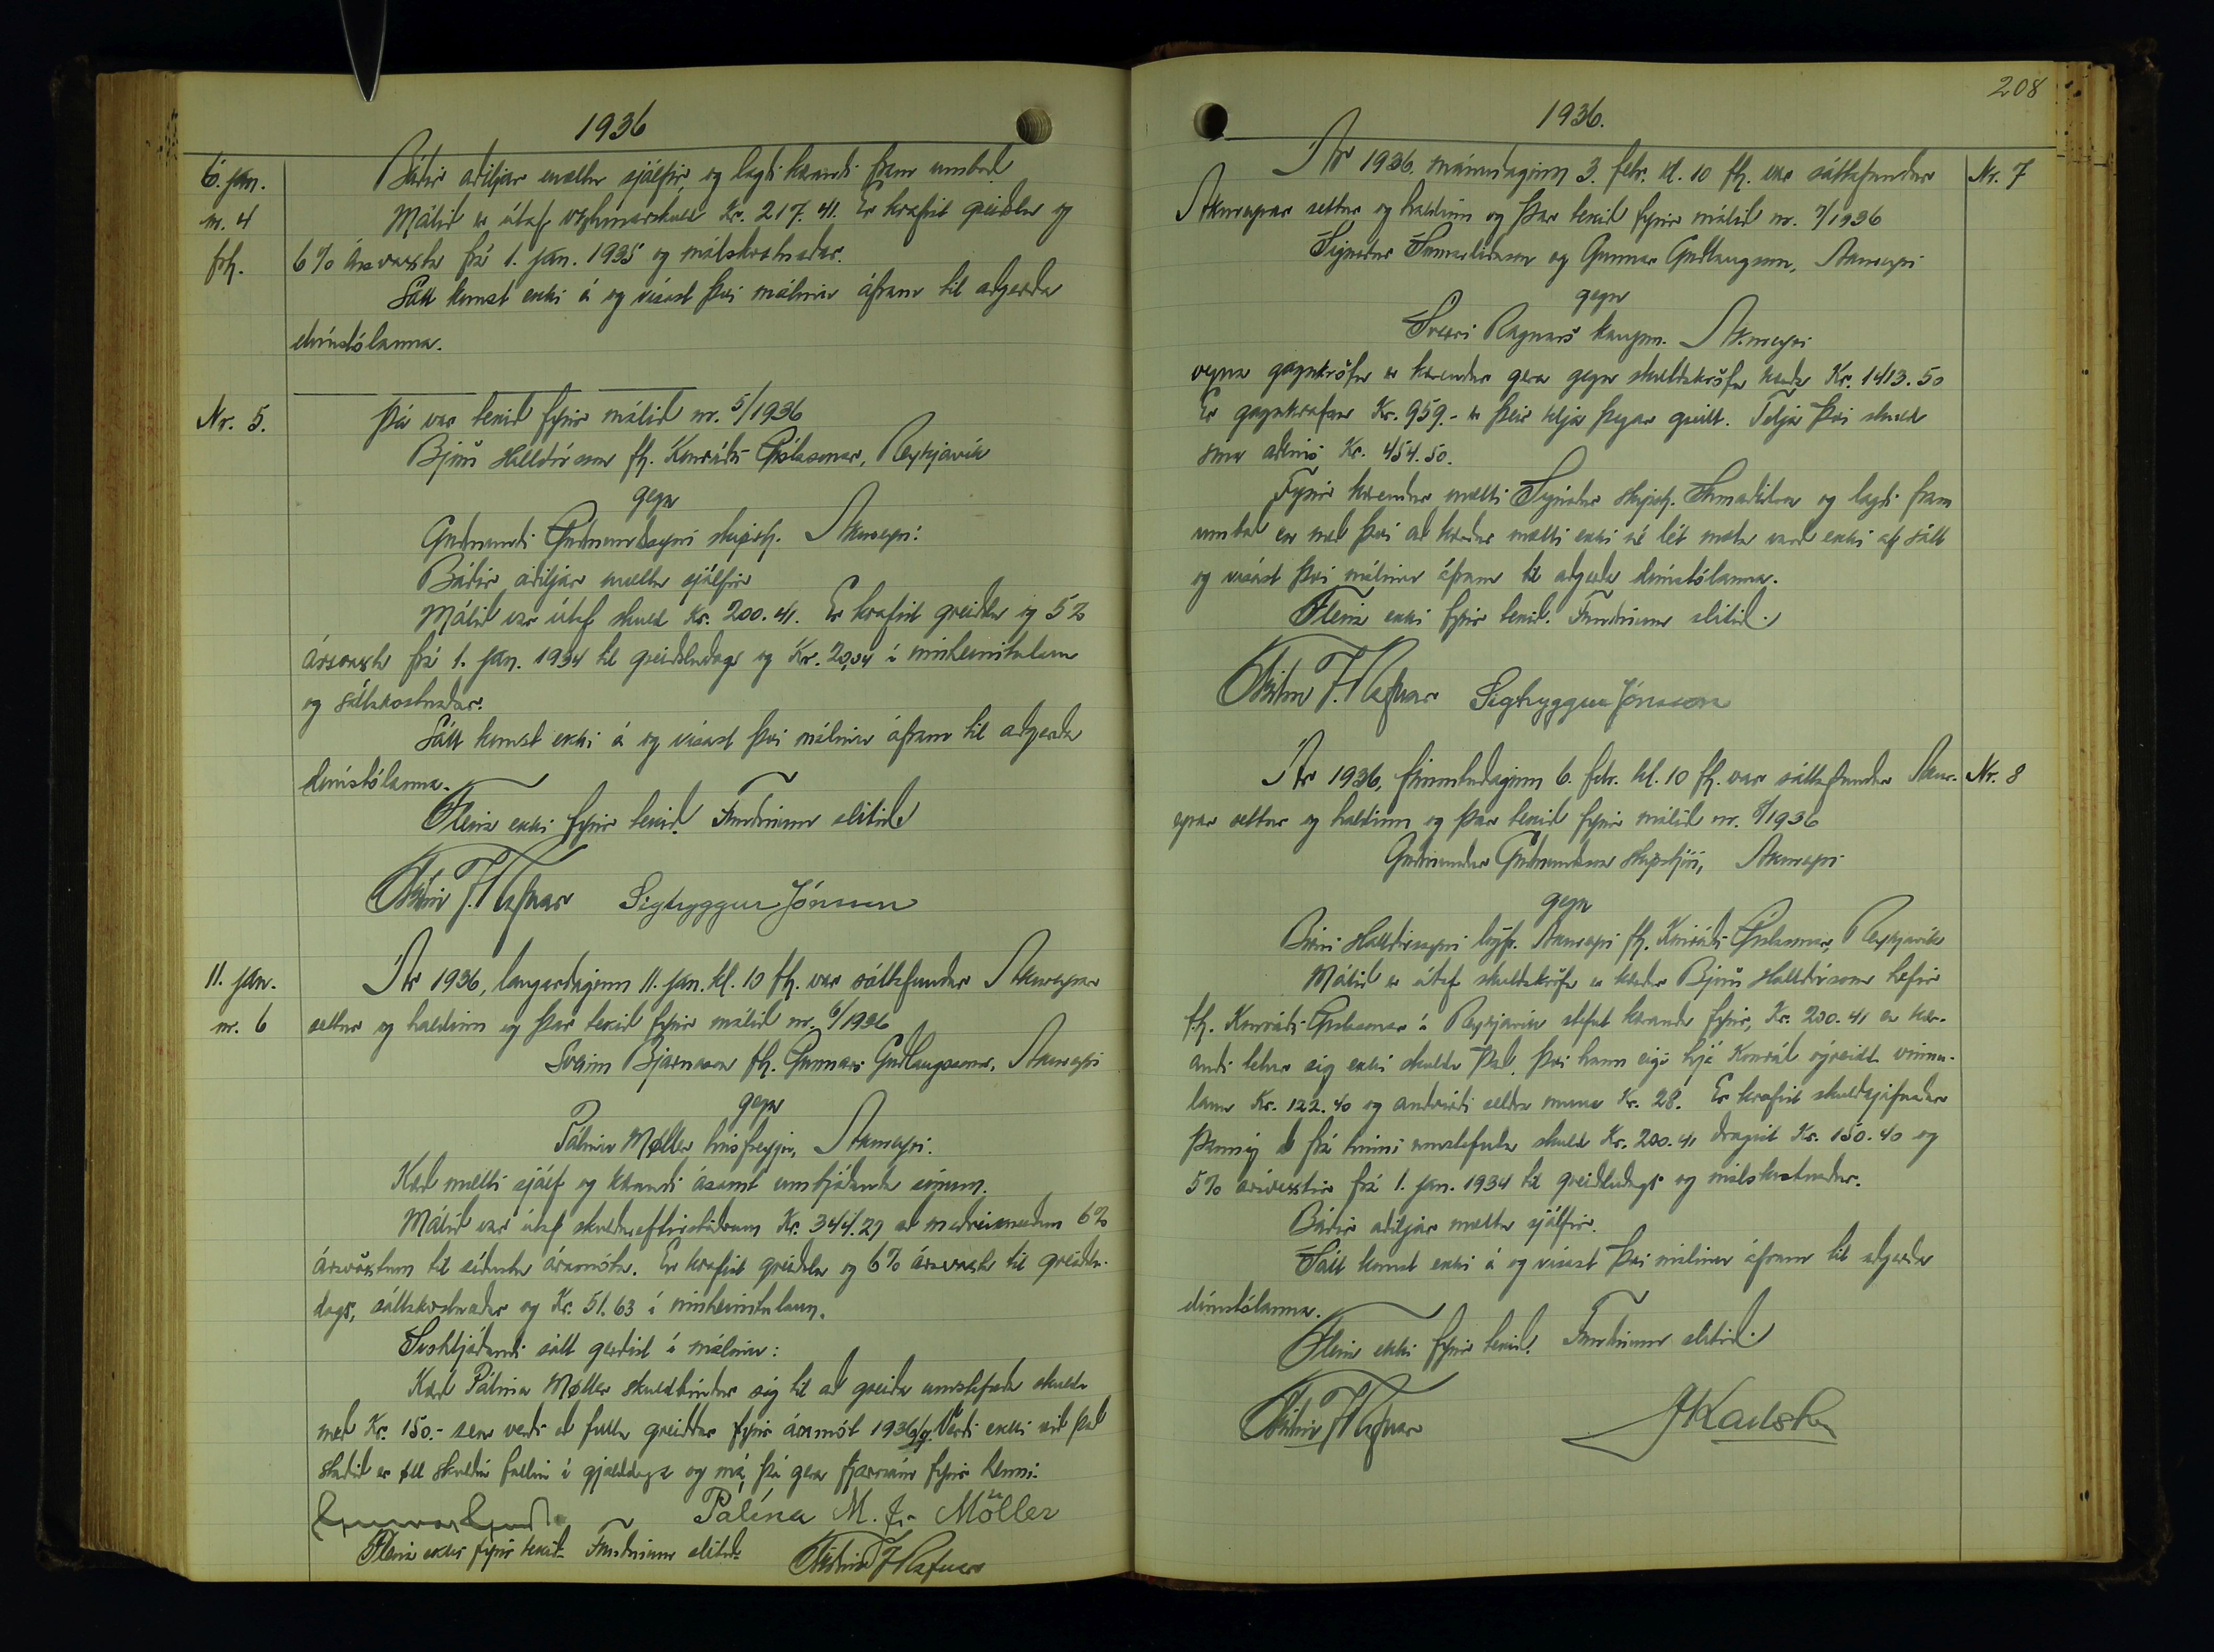 1936
6. jan. Báðir aðiljar mættu sjálfir og lagði kærandi fram umboð.
nr. 4 Málið er útaf skuld Kr. 217.41. Er krafist greiðslu og
frh. 6% ársvaxta frá 1. jan. 1935 og málskostnaðar.
Sátt komst ekki á og vísast því málinu áfram til aðgerða
dómstólanna.
Nr. 5. Þá var tekið fyrir málið nr. 5/1936
Björn Halldórsson fh. Konráðs Gíslasonar, Reykjavík
gegn
Guðmundi Guðmundssyni skipstj. Akureyri:
Báðir aðiljar mættu sjálfir
Málið var útaf skuld Kr. 200.41. Er krafist greiðslu og 5%
ársvaxta frá 1. jan. 1934 til greiðsludags og Kr. 20,04 í innheimtulaun
og sáttakostnaðar.
Sátt komst ekki á og vísast því málinu áfram til aðgerða
dómstólanna.
Fleira ekki fyrir tekið. Fundinum slitið
Friðrik J. Rafnar Sigtryggur Jónsson
11. jan. Ár 1936, laugardaginn 11. jan. kl. 10 fh. var sáttafundur Akureyrar
nr. 6 settur og haldinn og þar tekið fyrir málið nr. 6/1936
Sveinn Bjarnason fh. Gunnars Guðlaugssonar, Akureyri
gegn
Pálínu Møller húsfreyju, Akureyri.
Kærð mætti sjálf og kærandi ásamt umbjóðanda sínum.
Málið var útaf skuldaeftirstöðvum Kr. 344.27 að meðreiknuðum 6%
ársvöxtum til síðustu áramóta. Er krafist greiðslu og 6% ársvaxta til greiðslu-
dags, sáttakostnaðar og Kr. 51.63 í innheimtulaun.
Svohljóðandi sátt gerðist í málinu:
Kærð Pálína Møller skuldbindur sig til að greiða umstefnda skuld
með Kr. 150.- sem verði að fullu greiddar fyrir áramót 1936/37. Verði ekki við það
staðið er öll skuldin fallin í gjalddaga og má þá gera fjárnám fyrir henni.
Palína M. J. Möller
Fleira ekki fyrir tekið. Fundinum slitið. Friðrik J Rafnar
208
1936.
Ár 1936 mánudaginn 3. febr. kl. 10 fh. var sáttafundur Nr. 7
Akureyrar settur og haldinn og þar tekið fyrir málið nr. 7/1936
Sigurður Sumarliðason og Gunnar Guðlaugsson, Akureyri
gegn
Sverri Ragnars kaupm. Akureyri
vegna gagnkröfu er kærendur gera gegn skuldakröfu kærða Kr. 1413.50
Er gagnkrafan Kr. 959.- er þeir telja þegar greitt. Telja því skuld
sína aðeins Kr. 454.50.
Fyrir kærendur mætti Sigurður skipstj. Sumarliðason og lagði fram
umboð en með því að kærður mætti ekki né lét mæta varð ekki af sátt
og vísast því málinu áfram til aðgerða dómstólanna.
Fleira ekki fyrir tekið. Fundinum slitið.
Friðrik J. Rafnar Sigtryggur Jónsson
Ár 1936, fimmtudaginn 6. febr. kl. 10 fh. var sáttafundur Akur- Nr. 8
eyrar settur og haldinn og þar tekið fyrir málið nr. 8/1936
Guðmundur Guðmundsson skipstjóri, Akureyri
gegn
Birni Halldórssyni lögfr. Akureyri fh. Konráðs Gíslasonar, Reykjavík
Málið er útaf skuldakröfu er kærður Björn Halldórsson hefir
fh. Konráðs Gíslasonar í Reykjavík stefnt kæranda fyrir, Kr. 200.41 er kær-
andi telur sig ekki skulda það, því hann eigi hjá Konráð ógreidd vinnu-
laun Kr. 122.40 og andvirði seldra muna Kr. 28. Er krafist skuldajafnaðar
þannig að frá hinni umstefndu skuld Kr. 200.41 dragist Kr. 150.40 og
5% ársvextir frá 1. jan. 1934 til greiðsludags og málskostnaðar.
Báðir aðiljar mættu sjálfir.
Sátt komst ekki á og vísast því málinu áfram til aðgerða
dómstólanna.
Fleira ekki fyrir tekið. Fundinum slitið.
Friðrik J Rafnar JKarlsson